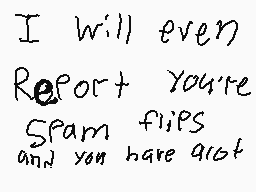 I will even
Report You're
Spam flips
and you have alot